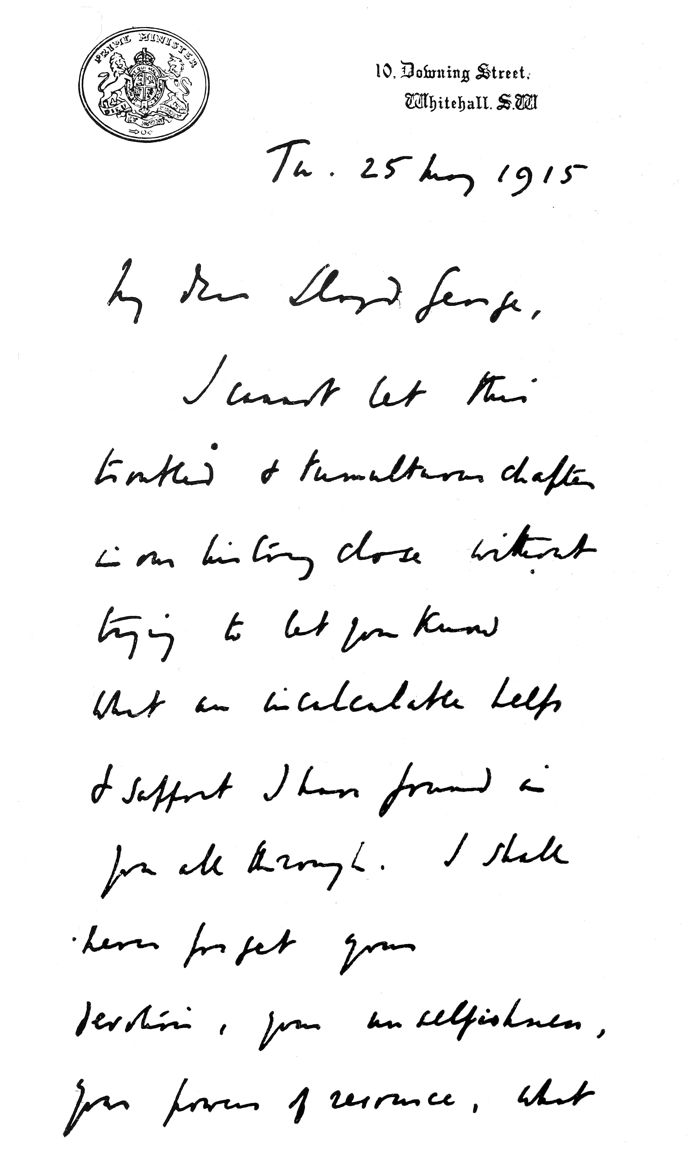 PRIME MINISTER
10, Downing Street,
Whitehall. S.W
Tu. 25 May 1915
My dear Lloyd George,
I cannot let this
troubled & tumultuous chapter
in our history close without
trying to let you know
what an incalculable help
& support I have found in
you all through. I shall
never forget your
devotion, your unselfishness,
your powers of resource, what